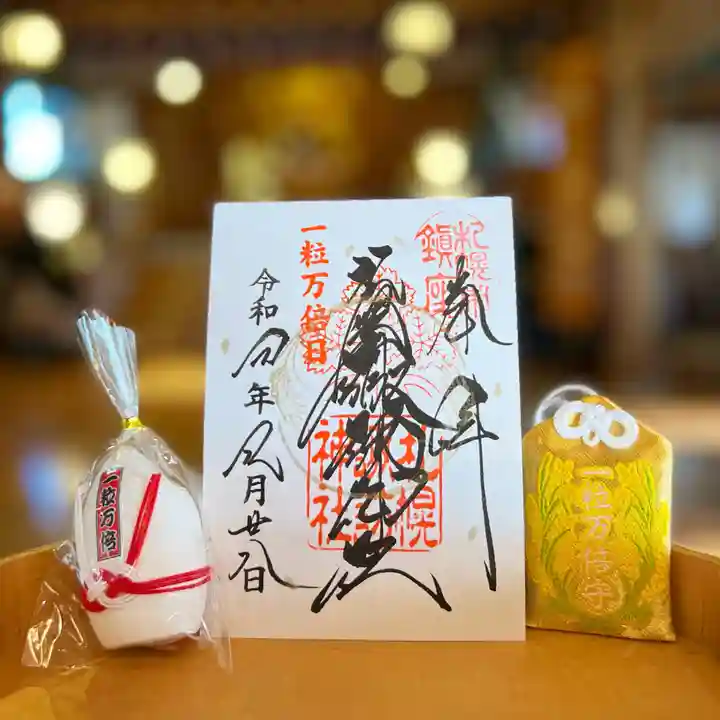 奉拝
札幌
鎮座
札幌諏訪神社
一粒万倍日
令和四年八月廿八日
一粒万倍
一粒万倍守